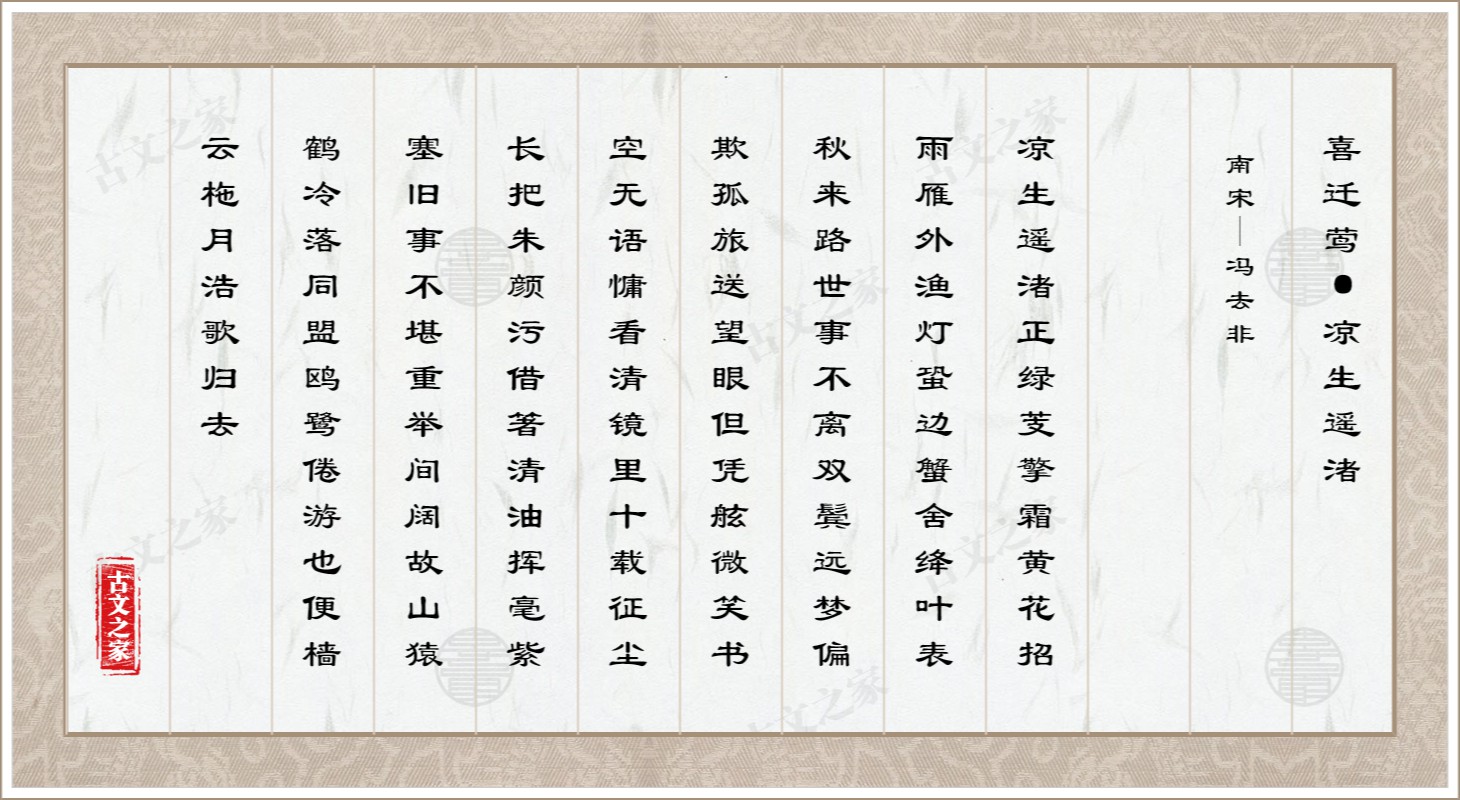 喜迁莺●凉生遥渚
南宋—冯去非
凉生遥渚正绿芰擎霜黄花招
雨雁外渔灯蛩边蟹舍绛叶表
秋来路世事不离双鬓远梦偏
欺孤旅送望眼但凭舷微笑书
空无语慵看清镜里十载征尘
长把朱颜污借箸清油挥毫紫
塞旧事不堪重举间阔故山猿
鹤冷落同盟鸥鹭倦游也便樯
云柂月浩歌归去
古文之家
古文之家
古文之家
古文之家
古文之家
古文之家
古文之家